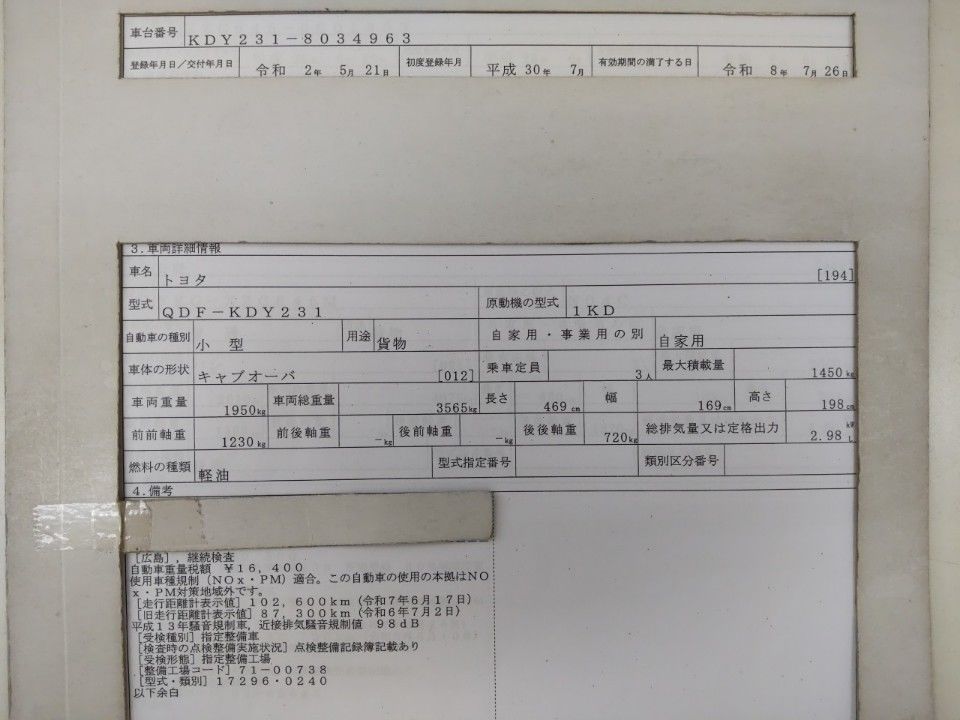 車台番号 KDY231-8034963
登録年月日/交付年月日 令和 2年 5月 21日 初度登録年月 平成 30年 7月 有効期間の満了する日 令和 8年 7月 26日
3.車両詳細情報
車名 トヨタ [194]
型式 QDF-KDY231 原動機の型式 1KD
自動車の種別 小 型 用途 貨物 自家用・事業用の別 自家用
車体の形状 キャブオーバ [012] 乗車定員 3人 最大積載量 1450kg
車両重量 1950kg 車両総重量 3565kg 長さ 469cm 幅 169cm 高さ 198cm
前前軸重 1230kg 前後軸重 -kg 後前軸重 -kg 後後軸重 720kg 総排気量又は定格出力 2.98 kW L
燃料の種類 軽油 型式指定番号 類別区分番号
4.備考
[広島],継続検査
自動車重量税額 ¥16,400
使用車種規制(NOx・PM)適合。この自動車の使用の本拠はNO
x・PM対策地域外です。
[走行距離計表示値]102,600km(令和7年6月17日)
[旧走行距離計表示値]87,300km(令和6年7月2日)
平成13年騒音規制車,近接排気騒音規制値 98dB
[受検種別]指定整備車
[検査時の点検整備実施状況]点検整備記録簿記載あり
[受検形態]指定整備工場
[整備工場コード]71-00738
[型式・類別]17296・0240
以下余白